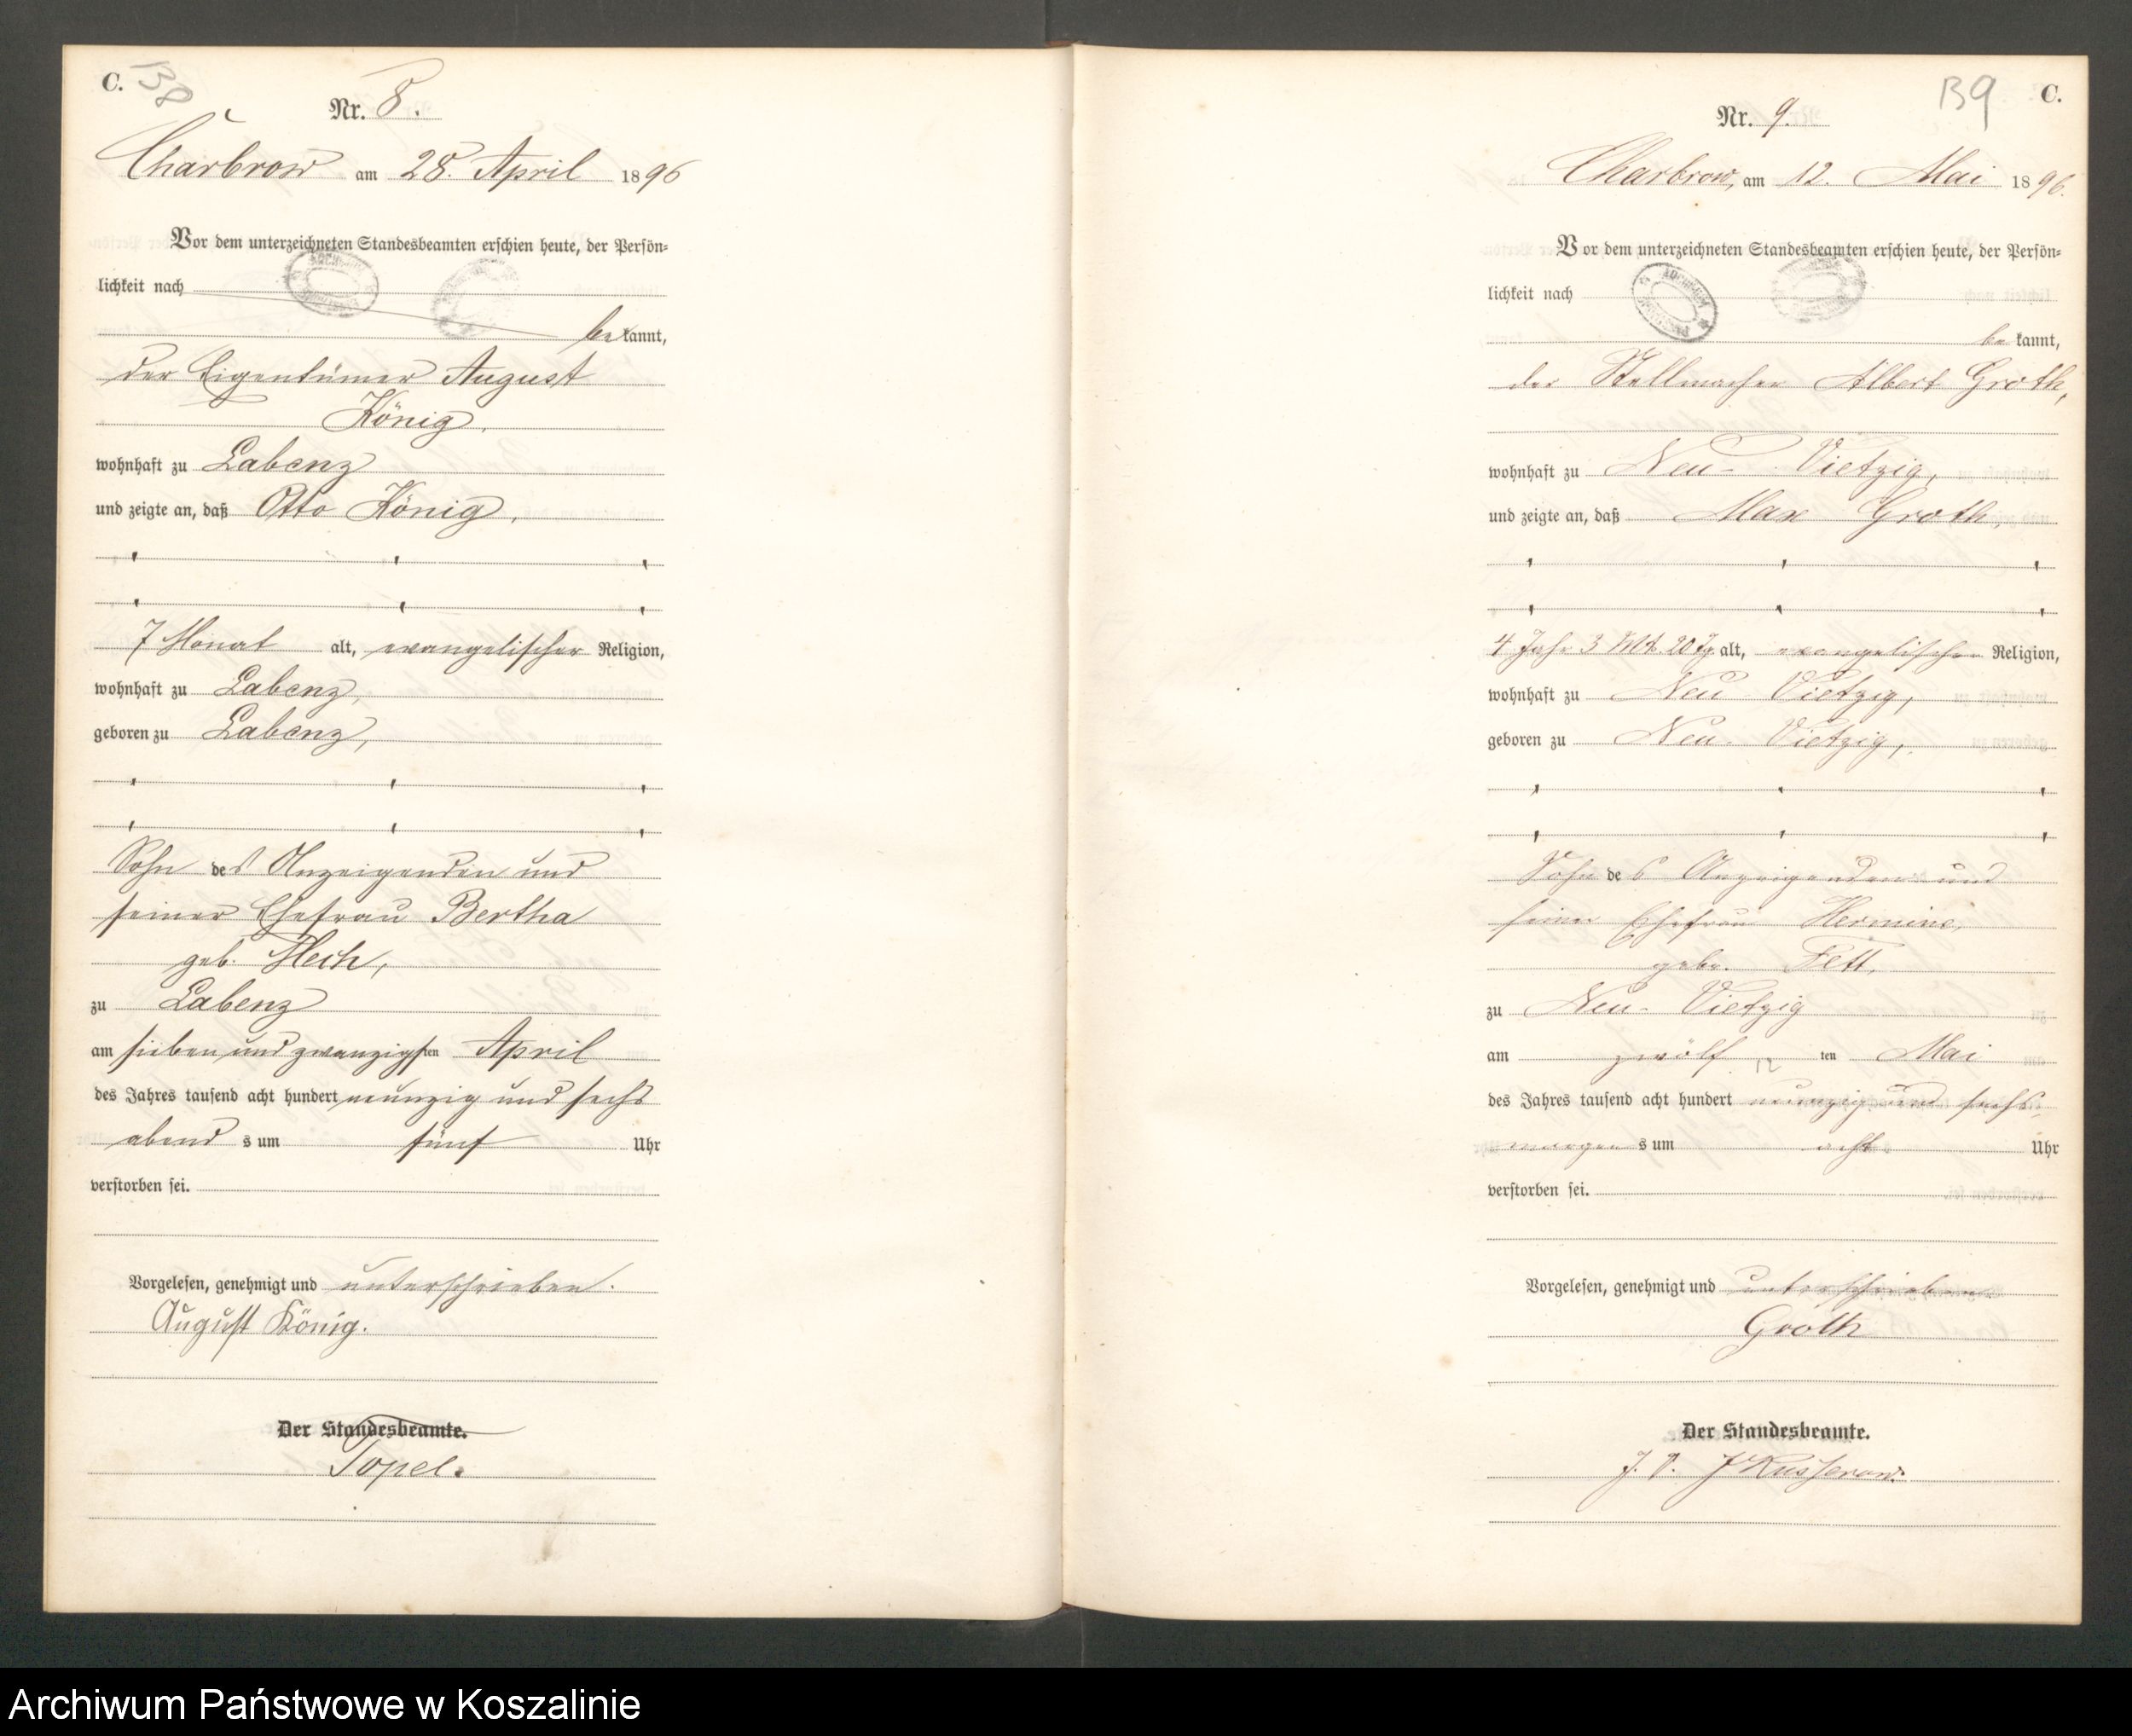 C. B8
Nr. 8.
Charbrow am 28. April 1896
Vor dem unterzeichneten Standesbeamten erschien heute, der Persön-
lichkeit nach
be kannt,
der Eigentümer August
König,
wohnhaft zu Labenz
und zeigte an, daß Otto König,
7 Monat alt, evangelischer Religion,
wohnhaft zu Labenz,
geboren zu Labenz,
Sohn des Anzeigenden und
seiner Ehefrau Bertha
geb. Mech,
zu Labenz
am sieben und zwanzigsten April
des Jahres tausend acht hundert neunzig und sechs
abend s um fünf Uhr
verstorben sei.
Vorgelesen, genehmigt und unterschrieben.
August König.
Der Standesbeamte.
Topel.
B9 C.
Nr. 9.
Charbrow, am 12. Mai 1896.
Vor dem unterzeichneten Standesbeamten erschien heute, der Persön-
lichkeit nach
be kannt,
der Stellmacher Albert Groth,
wohnhaft zu Neu-Vietzig,
und zeigte an, daß Max Groth,
4 Jahr 3 Mt. 20 Tg alt, evangelischer Religion,
wohnhaft zu Neu Vietzig,
geboren zu Neu-Vietzig,
Sohn des Anzeigenden und
seiner Ehefrau Hermine,
gebr. Fett,
zu Neu-Vietzig
am zwölf ten Mai
des Jahres tausend acht hundert neunzig und sechs
morgen s um acht Uhr
verstorben sei.
Vorgelesen, genehmigt und unterschrieben
Groth
Der Standesbeamte.
J. V. J Kusserow.
Archiwum Państwowe w Koszalinie